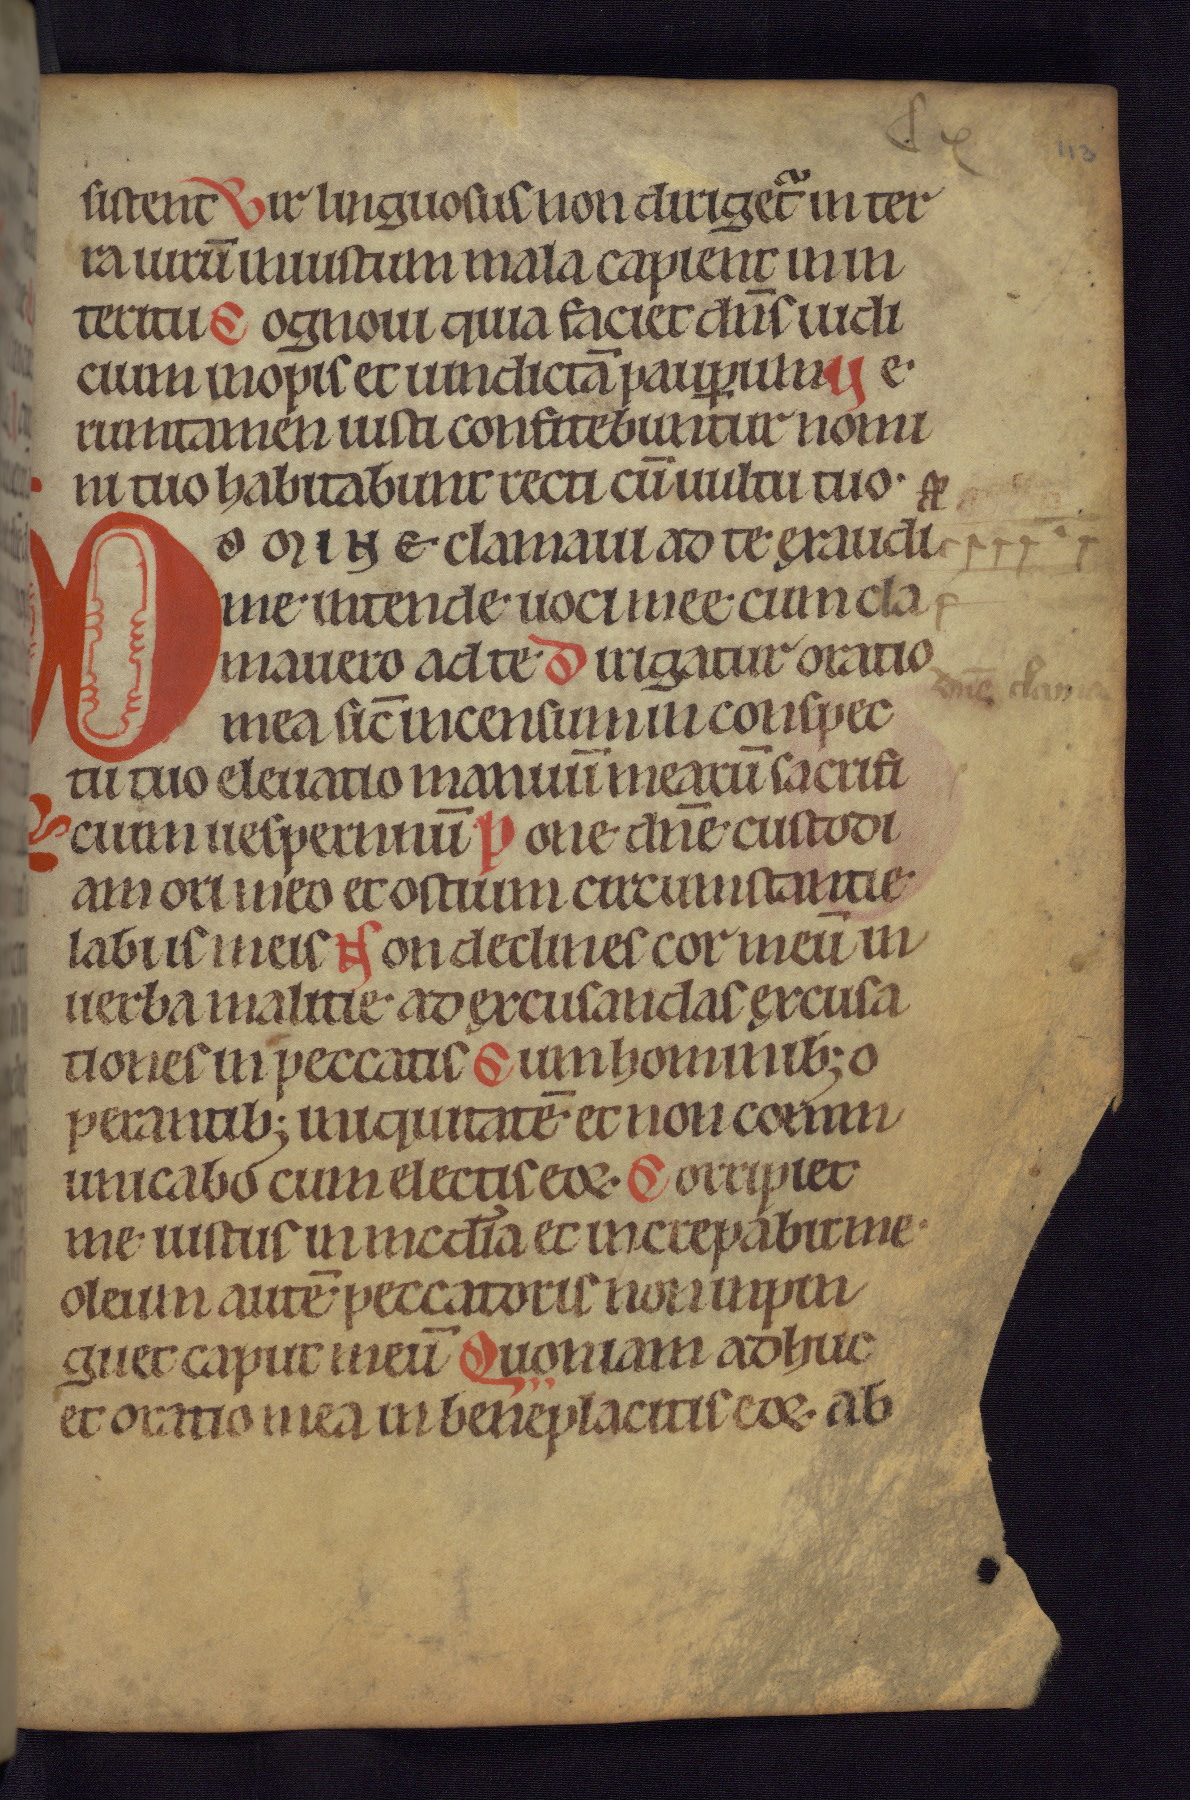 113
sistent Vir linguosus non dirigeť in ter
ra uirū iniustum mala capient in in
teritu Cognoui quia faciet dn̄s iudi
cium inopis et uindictā paup̱rum Ue
runtamen iusti confitebuntur nomi
ni tuo habitabunt recti cū uultu tuo·
DOMINE· clamaui ad te· exaudi
me· intende· uoci mee· cum cla
mauero ad te· Dirigatur oratio
mea sic̄ incensum in conspec
tu tuo eleuatio manuū mearū sacrifi
cium uespertinū Pone· dn̄e· custodi
am ori meo et ostium circumstantie·
labiis meis Non declines cor meū in
uerba malitie· ad excusandas excusa
tiones in peccatis Cum hominib; o
perantib; iniquitatē· et non comm
unicabo cum electis eoꝝ· Corripiet
me· iustus in mcdia et increpabit me·
oleum autē· peccatoris non inpin
guet caput meū Quoniam adhuc
et oratio mea in beneplacitis eoꝝ· ab
dn̄e clama